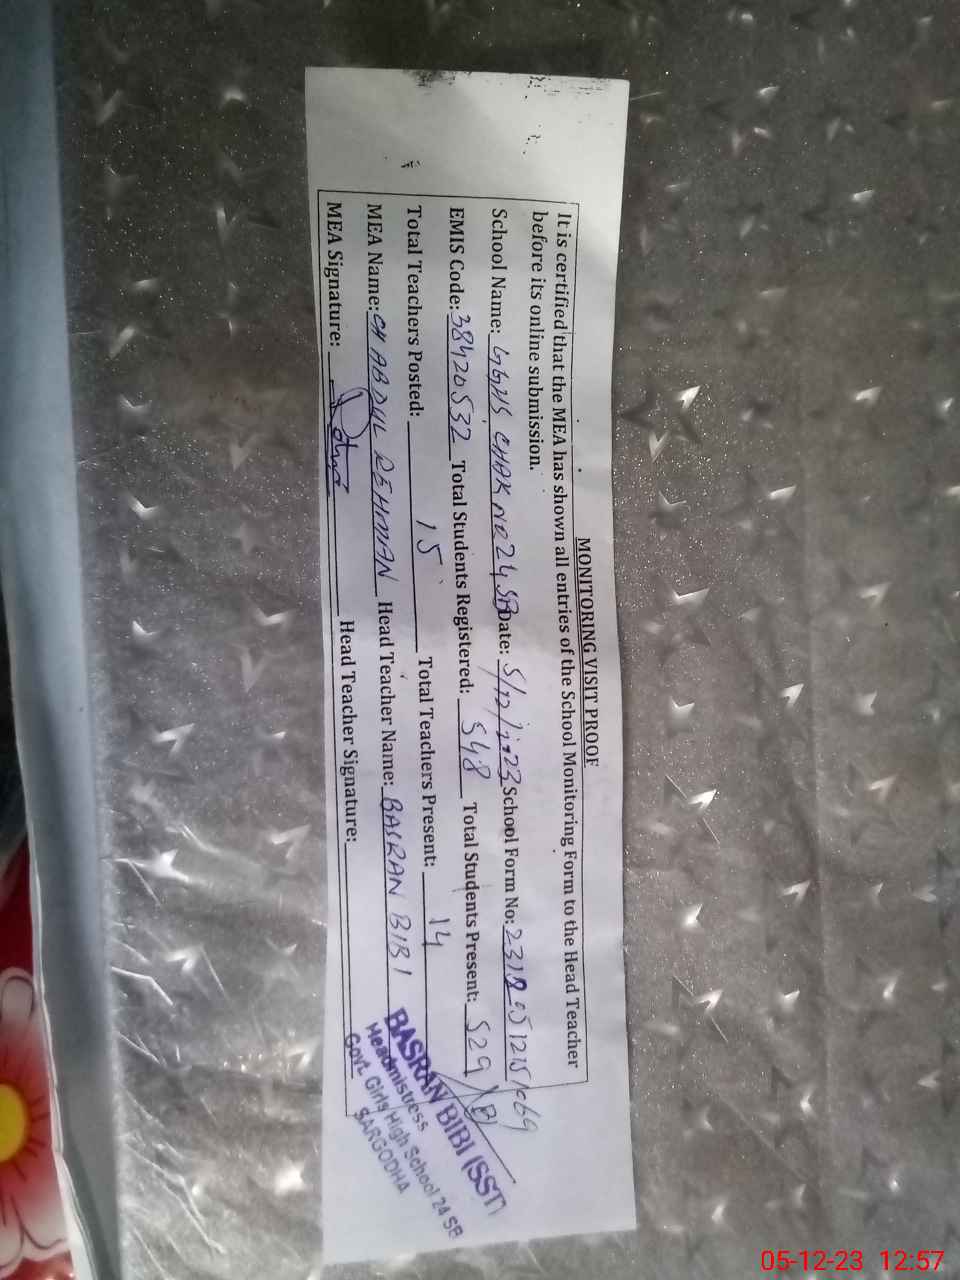 MONITORING VISIT PROOF
It is certified that the MEA has shown all entries of the School Monitoring Form to the Head Teacher
before its online submission.
School Name: GGHS CHAK NO 24 SB Date: 5/12/2023 School Form No:
EMIS Code: 38420532 Total Students Registered: 548 Total Students Present: 529
Total Teachers Posted: 15 Total Teachers Present: 14
MEA Name: CH ABDUL REHMAN Head Teacher Name: BASRAN BIBI
MEA Signature: Head Teacher Signature:
BASRAN BIBI (SST)
Headmistress
Govt. Girls High School 24 SB
SARGODHA
05-12-23 12:57